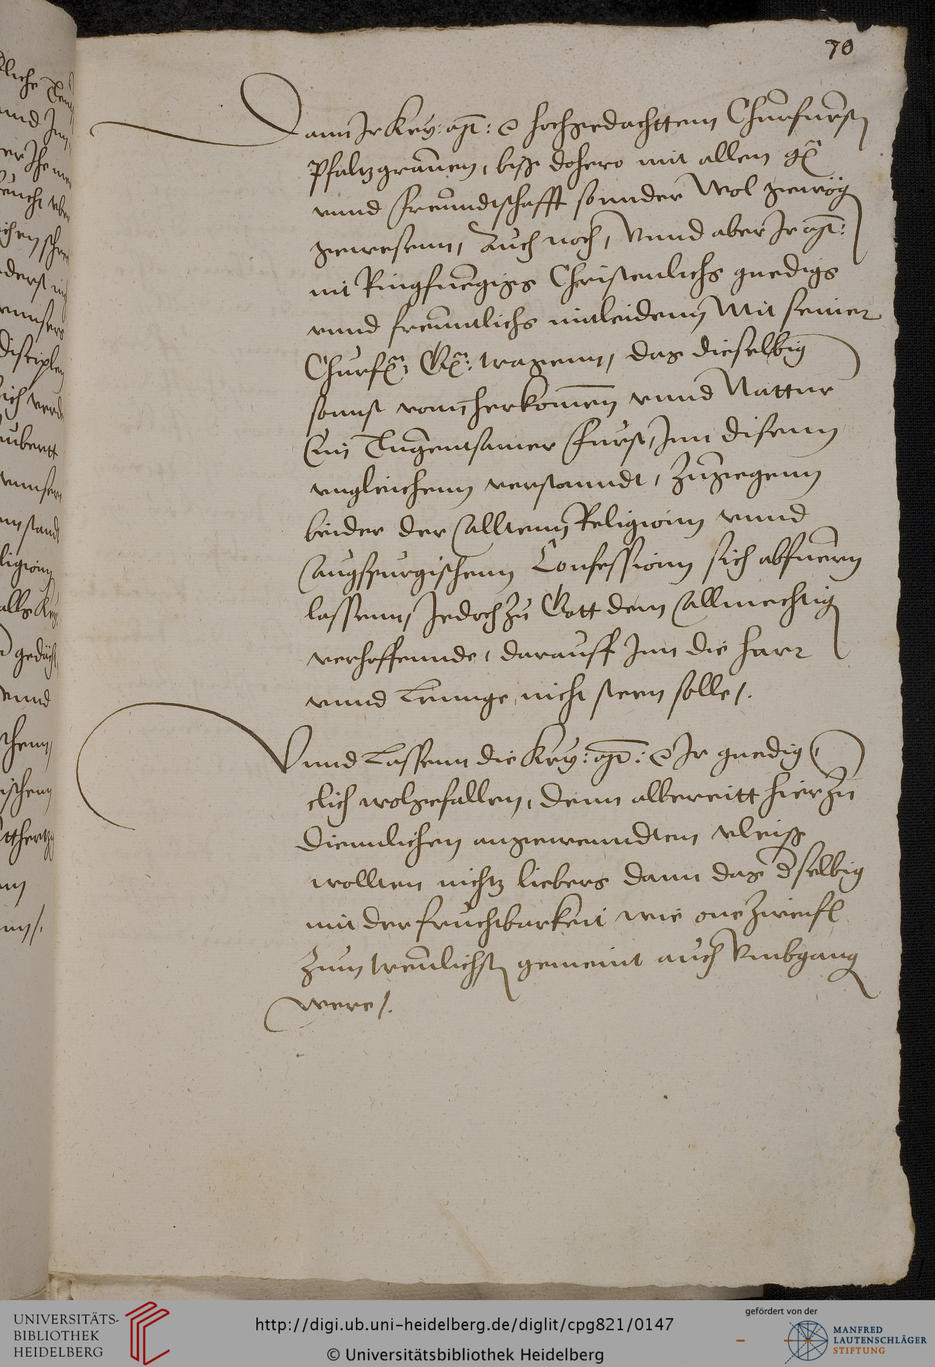 70
Dann Ir Key: Mt: hochgedachttem Churfurst
Pfaltzgrauen, biß dohero mit allen
vnnd freundtschafft sonnder wol gewög
gewesenn, Auch noch, Vnnd aber Ir Mt:
nit Ringfuegigs Christenlichs gnedigs
vnnd freuntlichs mitleidenn Mit seiner
Churf: G: tragenn, das dieselbig
sonnst vonn herkomen vnnd Nattur
Ein Tugentsamer Furst, Inn disenn
vngleichenn verstanndt, Zugegenn
beider der Alltenn Religionn vnnd
Augspurgischenn Confessionn sich abfuern
lassenn, Jedoch zu Gott dem Allmechtig
verhoffennde, darauff Inn die harr
vnnd Lennge nicht steen solle/.
Vnnd Lassenn die Key: Mt: Ir gnedig
clich wolgefallen, denn albereitt hierzu
diennlichen angewenndten vleiss
wollten nichtz liebers dann das dselbig
mit der fruchtbarkeit wie one Zweifl
Zum treulichst gemeint auch Vmbgang
were/.
UNIVERSITÄTS-
BIBLIOTHEK
HEIDELBERG
http://digi.ub.uni-heidelberg.de/diglit/cpg821/0147
© Universitätsbibliothek Heidelberg
gefördert von der
MANFRED
LAUTENSCHLÄGER
STIFTUNG